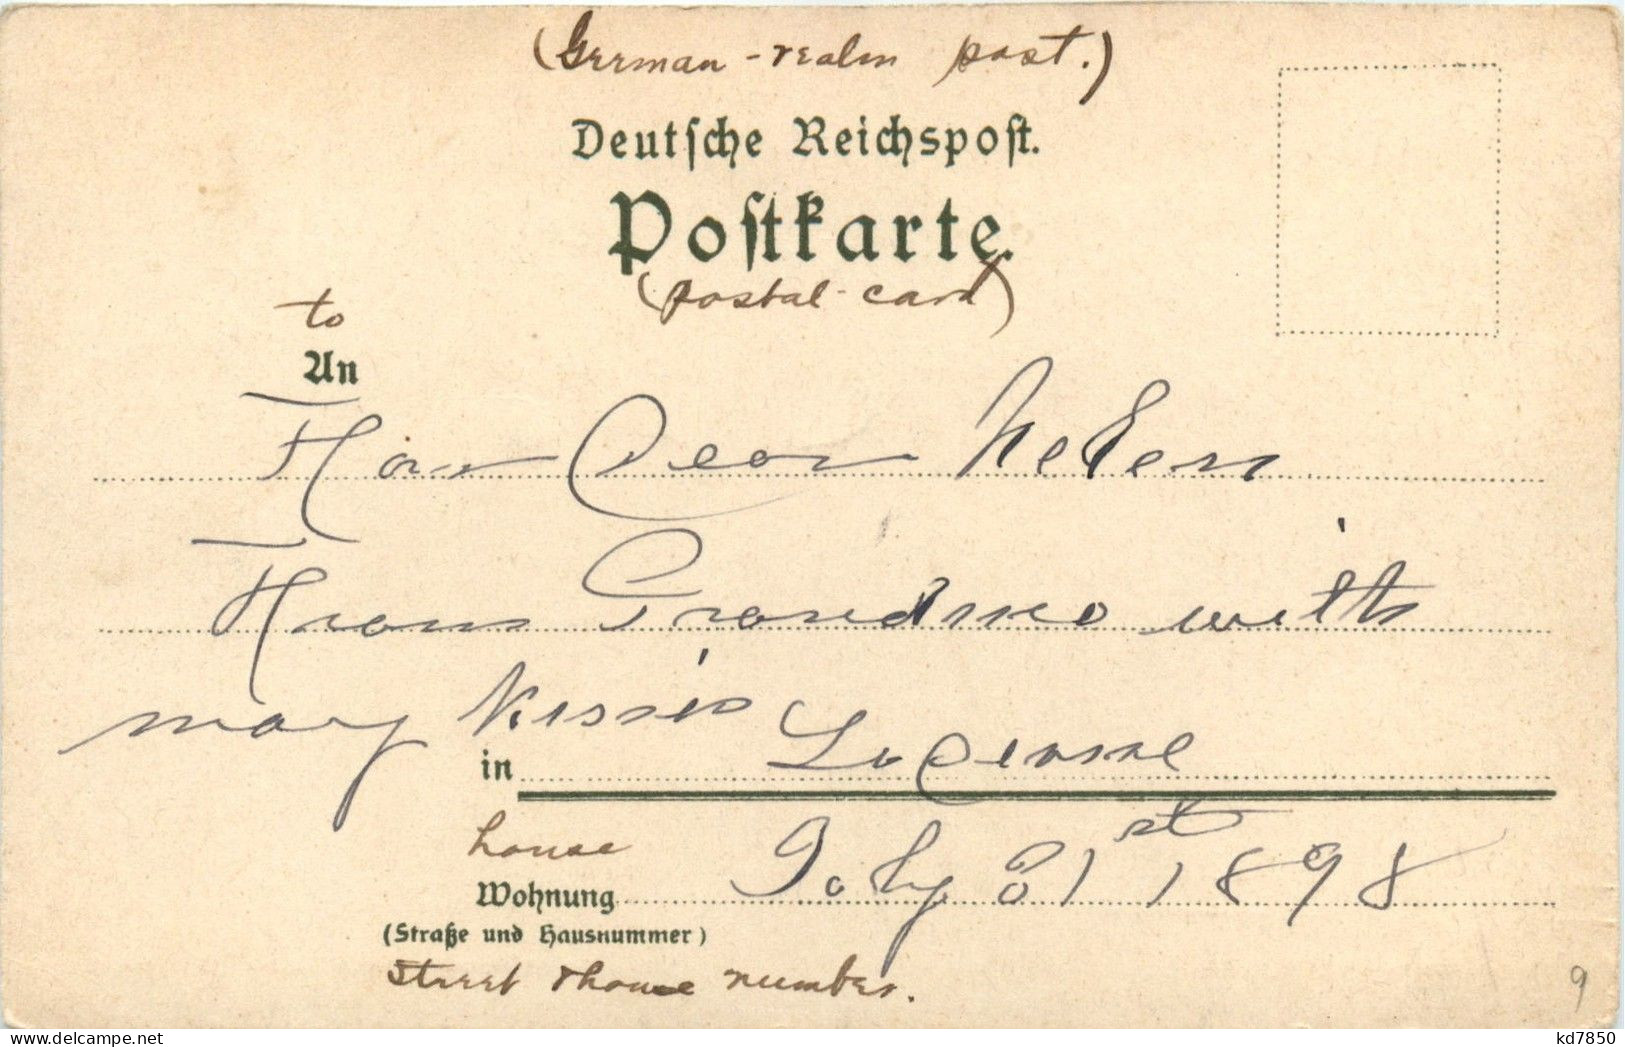 (German-realm post.)
Deutsche Reichspost.
Postkarte.
(postal-card)
to
An
For Dear Helen
From Grandma with
many kisses
in Lucerne
house
July 31st 1898
Wohnung
(Straße und Hausnummer)
Street & house number.
9
kd7850